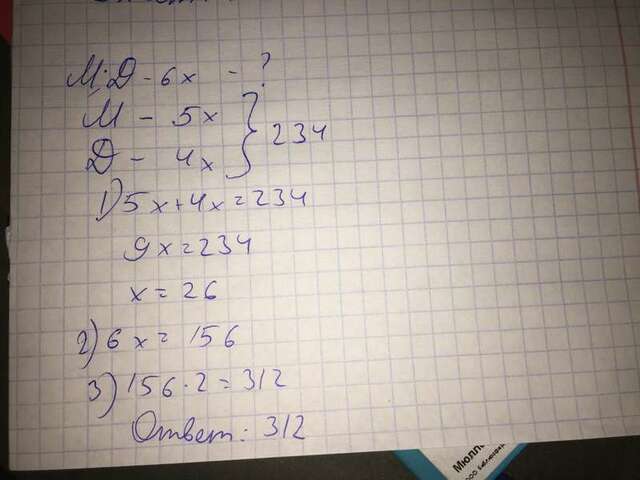 М;Д - 6x - ?
М - 5x
Д - 4x } 234
1) 5x+4x=234
9x=234
x=26
2) 6x=156
3) 156·2=312
Ответ: 312
Мюлле